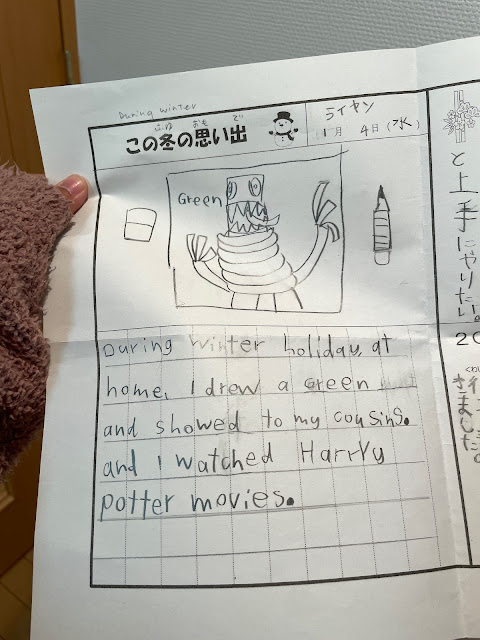 During winter
この冬の思い出
ふゆ おも で
ライヤン
1月 4日(水)
Green
During Winter holiday, at
home, I drew a green
and showed to my cousins.
and I watched Harry
potter movies.
と上手にやりたい。
20
さました。